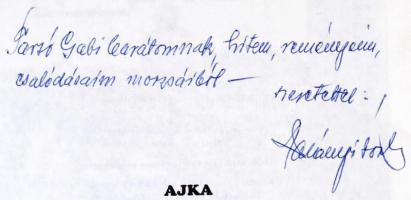 Tarsó Gabi barátomnak, hitem, reményeim,
csalódásaim morzsáiból —
szeretettel:
AJKA